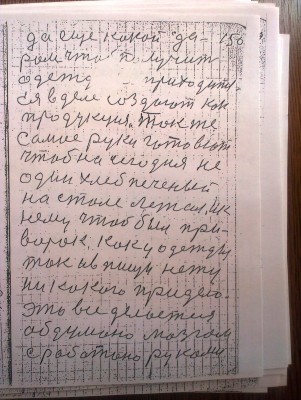 да еще какой да- 150
ром чтоб получить
одежд приходит
ся в деле создают как
продукция. Так же
самое руки готовят
чтоб на сегодня не
один хлеб печеный
на столе лежал, и к
нему чтоб был при-
варок. Как у одежды
так и в пищи нету
никакого придела
Это все делается
обдумано мозгом
сработано руками